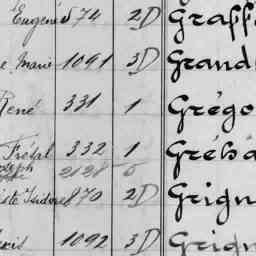 Eugène 574 2D Graff
e Marie 1091 3D Grand
René 331 1 Grégo
Frésal 332 1 Gréba
Joseph 2128 6
iste Isidore 870 2D Grign
exis 1092 3D Grign